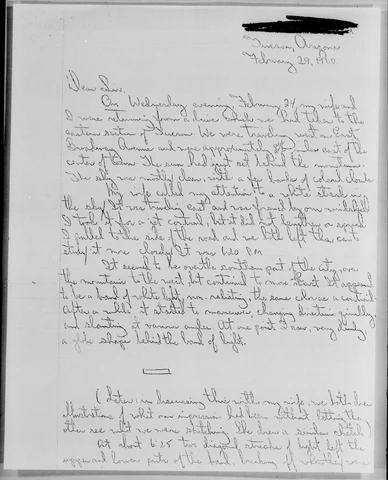 Tucson, Arizona
February 29, 1960
Dear Sir,
On Wednesday evening, February 24, my wife and
I were returning from a drive which we had taken to the
eastern section of Tucson. We were traveling west on East
Broadway Avenue and were approximately miles east of the
center of town. The sun had just set behind the mountains.
The sky was mostly clear, with a few banks of colored clouds.
My wife called my attention to a white streak in
the sky. It was heading east and was framed by our windshield.
I took it for a jet contrail, but it did not lengthen or spread.
I pulled to the side of the road and we both left the car to
study it more closely. It was 6:20 PM
It seemed to be over the southern part of the city, over
the mountains to the west, but continued to move It appeared
to be a band of white light, non-radiating, the same color as a contrail.
After a while it started to maneuver, changing direction quickly,
and slanting at various angles. At one point I saw, very dimly
a globe shape behind the band of light.
(Later, in discussing this with my wife, we both drew
illustrations of what our impression had been without letting the
other see what we were sketching. She drew a similar sketch.)
At about 6:25 two diagonal streaks of light left the
upper and lower parts of the band, breaking off